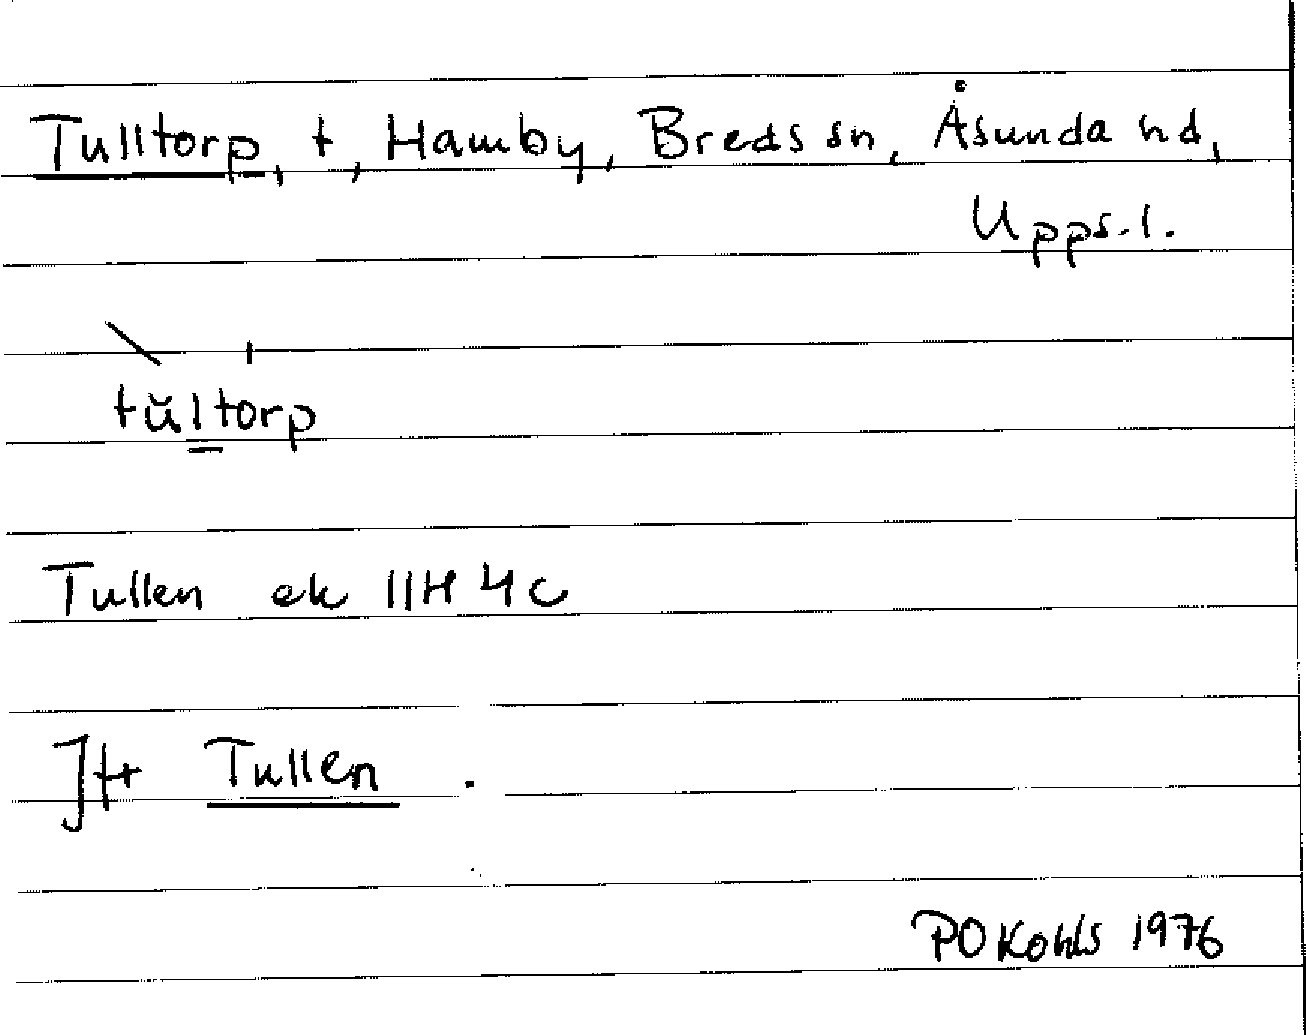 Tulltorp, t, Hamby, Breds sn, Åsunda hd,
Upps.l.
tŭltorp
Tullen ek 11H 4c
Jfr Tullen .
PO Kohls 1976